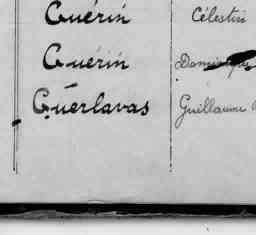 Guérin Célestin
Guérin Dominique
Guerlavas Guillaume